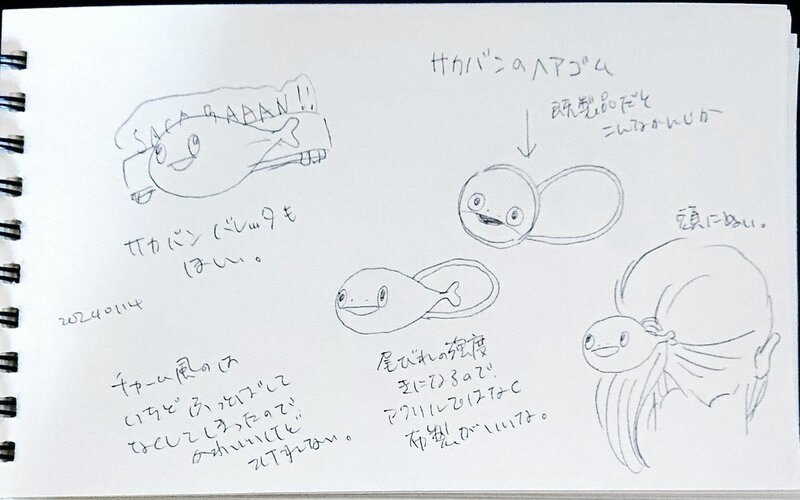 サカバンのヘアゴム
既製品だと
こんなかんじか
SACABAPAN!!
サカバン バレッタも
ほしい。
頭にぬい。
20240114
チャーム風のは
いちど ふっとばして
なくしてしまったので
かわいいけど
つけれない。
尾びれの強度
きになるので
アクリルではなく
布製がいいな。